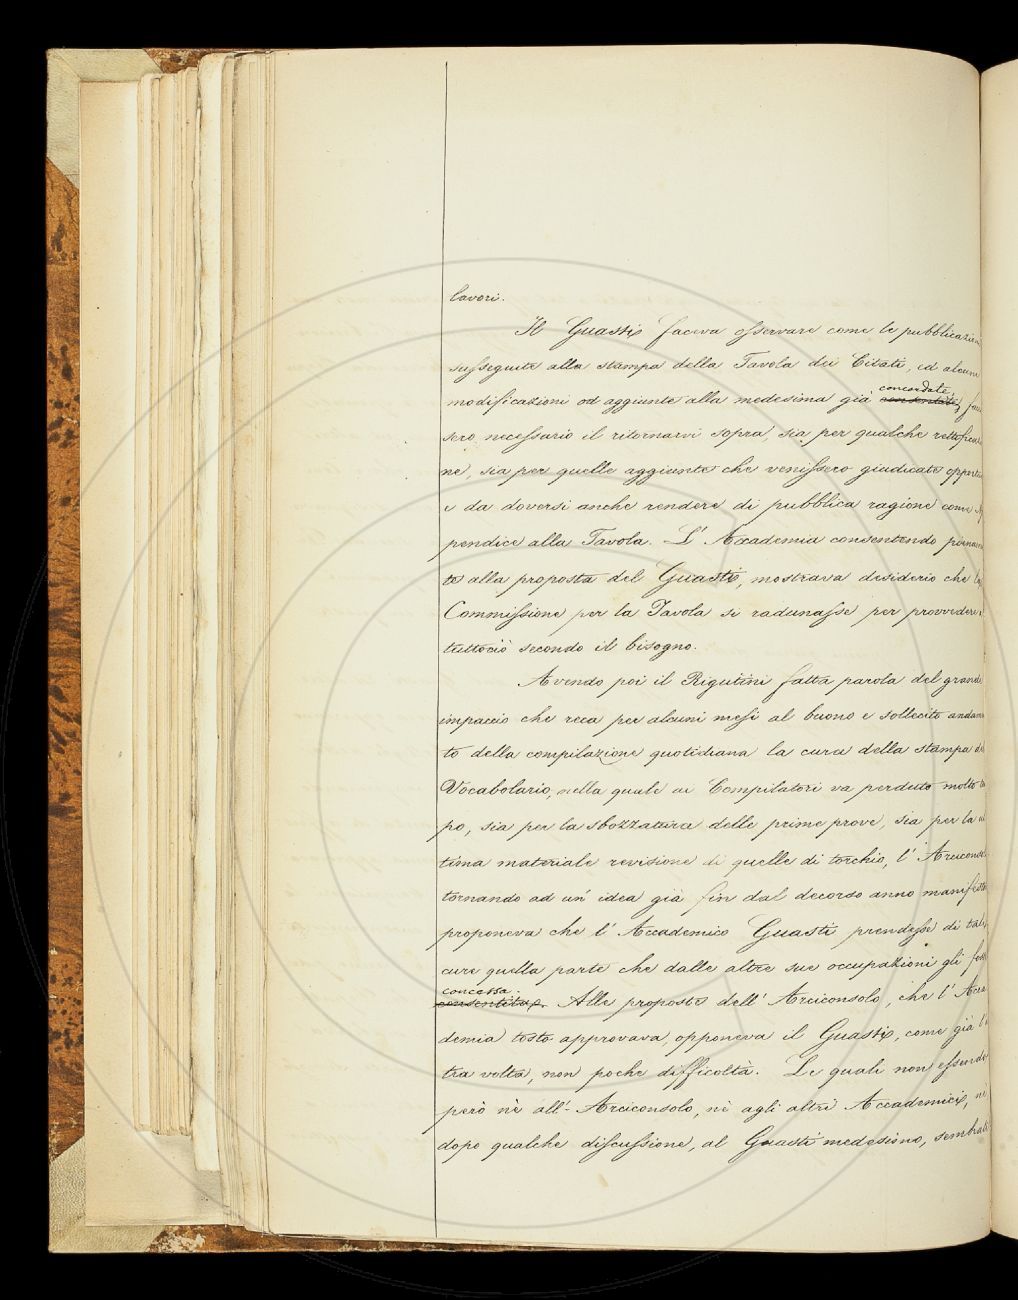 lavori.
Il Guasti faceva osservare come le pubblicazioni
susseguite alla stampa della Tavola dei Citati, ed alcune
modificazioni od aggiunte alla medesima già concordate consentite, faces
sero necessario il ritornarvi sopra, sia per qualche rettificazio
ne, sia per quelle aggiunte che venissero giudicate opportu
e da doversi anche rendere di pubblica ragione come Ap
pendice alla Tavola. L' Accademia consentendo pienamen
te alla proposta del Guasti, mostrava desiderio che la
Commissione per la Tavola si radunasse per provvedere a
tuttociò secondo il bisogno.
Avendo poi il Rigutini fatta parola del grande
impaccio che reca per alcuni mesi al buono e sollecito andamen
to della compilazione quotidiana la cura della stampa del
Vocabolario, nella quale ai Compilatori va perduto molto tem
po, sia per la sbozzatura delle prime prove, sia per la ul
tima materiale revisione di quelle di torchio, l' Arciconsolo
tornando ad un' idea già fin dal decorso anno manifesta
proponeva che l' Accademico Guasti prendesse di tali
cure quella parte che dalle altre sue occupazioni gli fosse
concessa. consentita. Alle proposte dell' Arciconsolo, che l' Acca
demia tosto approvava, opponeva il Guasti, come già l' al
tra volta, non poche difficoltà. Le quali non essendo
però nè all' Arciconsolo, nè agli altri Accademici, nè
dopo qualche discussione, al Guasti medesimo, sembrate